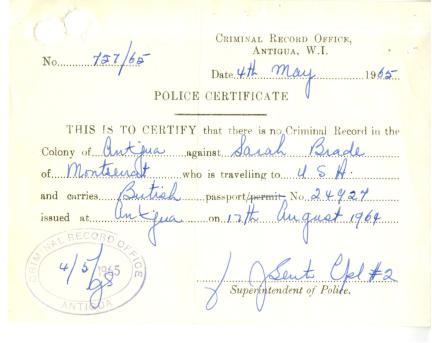 CRIMINAL RECORD OFFICE,
ANTIGUA, W.I.
No. 727/65
Date. 4th May 1965
POLICE CERTIFICATE
THIS IS TO CERTIFY that there is no Criminal Record in the
Colony of Antigua against Sarah Brade
of Montserrat who is travelling to USA.
and carries British passport/permit No. 24927
issued at Antigua on 17th August 1964
CRIMINAL RECORD OFFICE
4/5/1965
ANTIGUA
Cpl #2
Superintendent of Police.